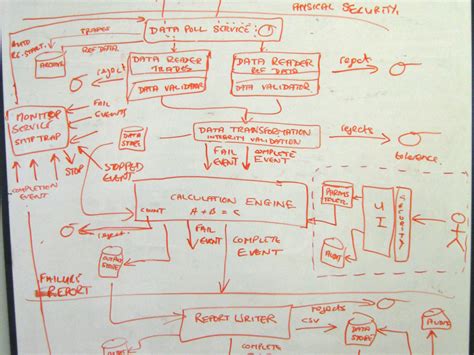 PHYSICAL SECURITY.
AUTO
RE.START.
TRADES
REF DATA
DATA POLL SERVICE
ARCHIVE
reject
DATA READER
TRADES
DATA VALIDATOR
DATA READER
REF DATA
DATA VALIDATOR
reject
MONITOR
SERVICE
SNMP TRAP
FAIL
EVENTS
DATA
STORE
DATA TRANSFORMATION
INTEGRITY VALIDATION
rejects
tolerance.
STOP
COMPLETION
EVENT
STOPPED
EVENT
FAIL
EVENT
COMPLETE
EVENT
CALCULATION ENGINE
A + B = C
COUNT
PARAMS
UI
SECURITY
AUDIT
reject.
OUTPUT
STORE
FAIL
EVENT
COMPLETE
EVENT
FAILURE
REPORT
REPORT WRITER
rejects
CSV
DATA
STORE
AUDIT
COMPLETE
FAIL